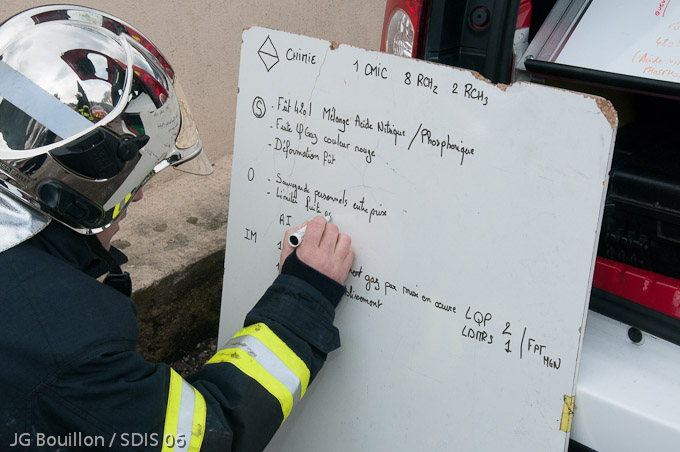 CHIMIE 1 CMIC 8 RCH2 2 RCH3
S - Fût 420l Mélange Acide Nitrique / Phosphorique
- Fuite φ Gaz couleur rouge
- Déformation fût
O - Sauvegarde personnels entreprise
- Limiter fuite
RI
IM 1
gaz par mise en œuvre LQP 2
LDMR3 1 / FPT
MGN
JG Bouillon / SDIS 06